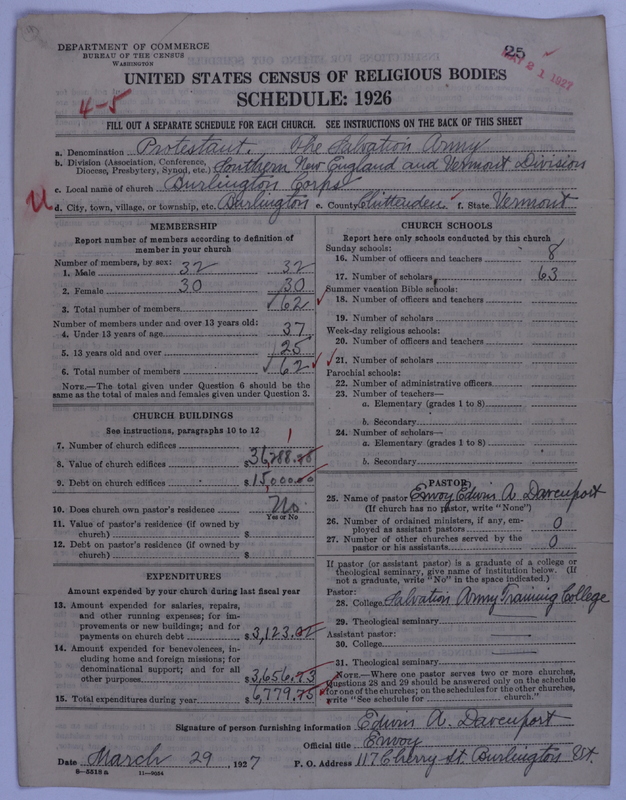 DEPARTMENT OF COMMERCE
BUREAU OF THE CENSUS
WASHINGTON
25
MAY 21 1927
UNITED STATES CENSUS OF RELIGIOUS BODIES
SCHEDULE: 1926
4-5
FILL OUT A SEPARATE SCHEDULE FOR EACH CHURCH. SEE INSTRUCTIONS ON THE BACK OF THIS SHEET
a. Denomination Protestant, The Salvation Army
b. Division (Association, Conference, Diocese, Presbytery, Synod, etc.) Southern New England and Vermont Division
c. Local name of church Burlington Corps
U
d. City, town, village, or township, etc. Burlington e. County Chittenden f. State Vermont
MEMBERSHIP
Report number of members according to definition of
member in your church
Number of members, by sex:
1. Male 32 32
2. Female 30 30
3. Total number of members 62
Number of members under and over 13 years old:
4. Under 13 years of age 37
5. 13 years old and over 25
6. Total number of members 62
NOTE.—The total given under Question 6 should be the
same as the total of males and females given under Question 3.
CHURCH BUILDINGS
See instructions, paragraphs 10 to 12
7. Number of church edifices 1
8. Value of church edifices $36,288.78
9. Debt on church edifices $15,000.00
10. Does church own pastor's residence No
Yes or No
11. Value of pastor's residence (if owned by
church) $
12. Debt on pastor's residence (if owned by
church) $
EXPENDITURES
Amount expended by your church during last fiscal year
13. Amount expended for salaries, repairs,
and other running expenses; for im-
provements or new buildings; and for
payments on church debt $3,123.02
14. Amount expended for benevolences, in-
cluding home and foreign missions; for
denominational support; and for all
other purposes $3,656.73
15. Total expenditures during year $6,779.75
CHURCH SCHOOLS
Report here only schools conducted by this church
Sunday schools:
16. Number of officers and teachers 8
17. Number of scholars 63
Summer vacation Bible schools:
18. Number of officers and teachers
19. Number of scholars
Week-day religious schools:
20. Number of officers and teachers
21. Number of scholars
Parochial schools:
22. Number of administrative officers
23. Number of teachers—
a. Elementary (grades 1 to 8)
b. Secondary
24. Number of scholars—
a. Elementary (grades 1 to 8)
b. Secondary
PASTOR
25. Name of pastor Envoy Edwin A. Davenport
(If church has no pastor, write "None")
26. Number of ordained ministers, if any, em-
ployed as assistant pastors 0
27. Number of other churches served by the
pastor or his assistants 0
If pastor (or assistant pastor) is a graduate of a college or
theological seminary, give name of institution below. (If
not a graduate, write "No" in the space indicated.)
Pastor:
28. College Salvation Army Training College
29. Theological seminary
Assistant pastor:
30. College
31. Theological seminary
NOTE.—Where one pastor serves two or more churches,
Questions 28 and 29 should be answered only on the schedule
for one of the churches; on the schedules for the other churches,
write "See schedule for church."
Signature of person furnishing information Edwin A. Davenport
Official title Envoy
Date March 29, 1927 P. O. Address 117 Cherry St. Burlington Vt.
8—5518a 11—9054